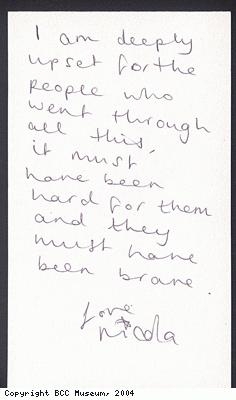 I am deeply
upset for the
people who
went through
all this,
it must
have been
hard for them
and they
must have
been brave.
Love
Nicola
Copyright BCC Museum, 2004